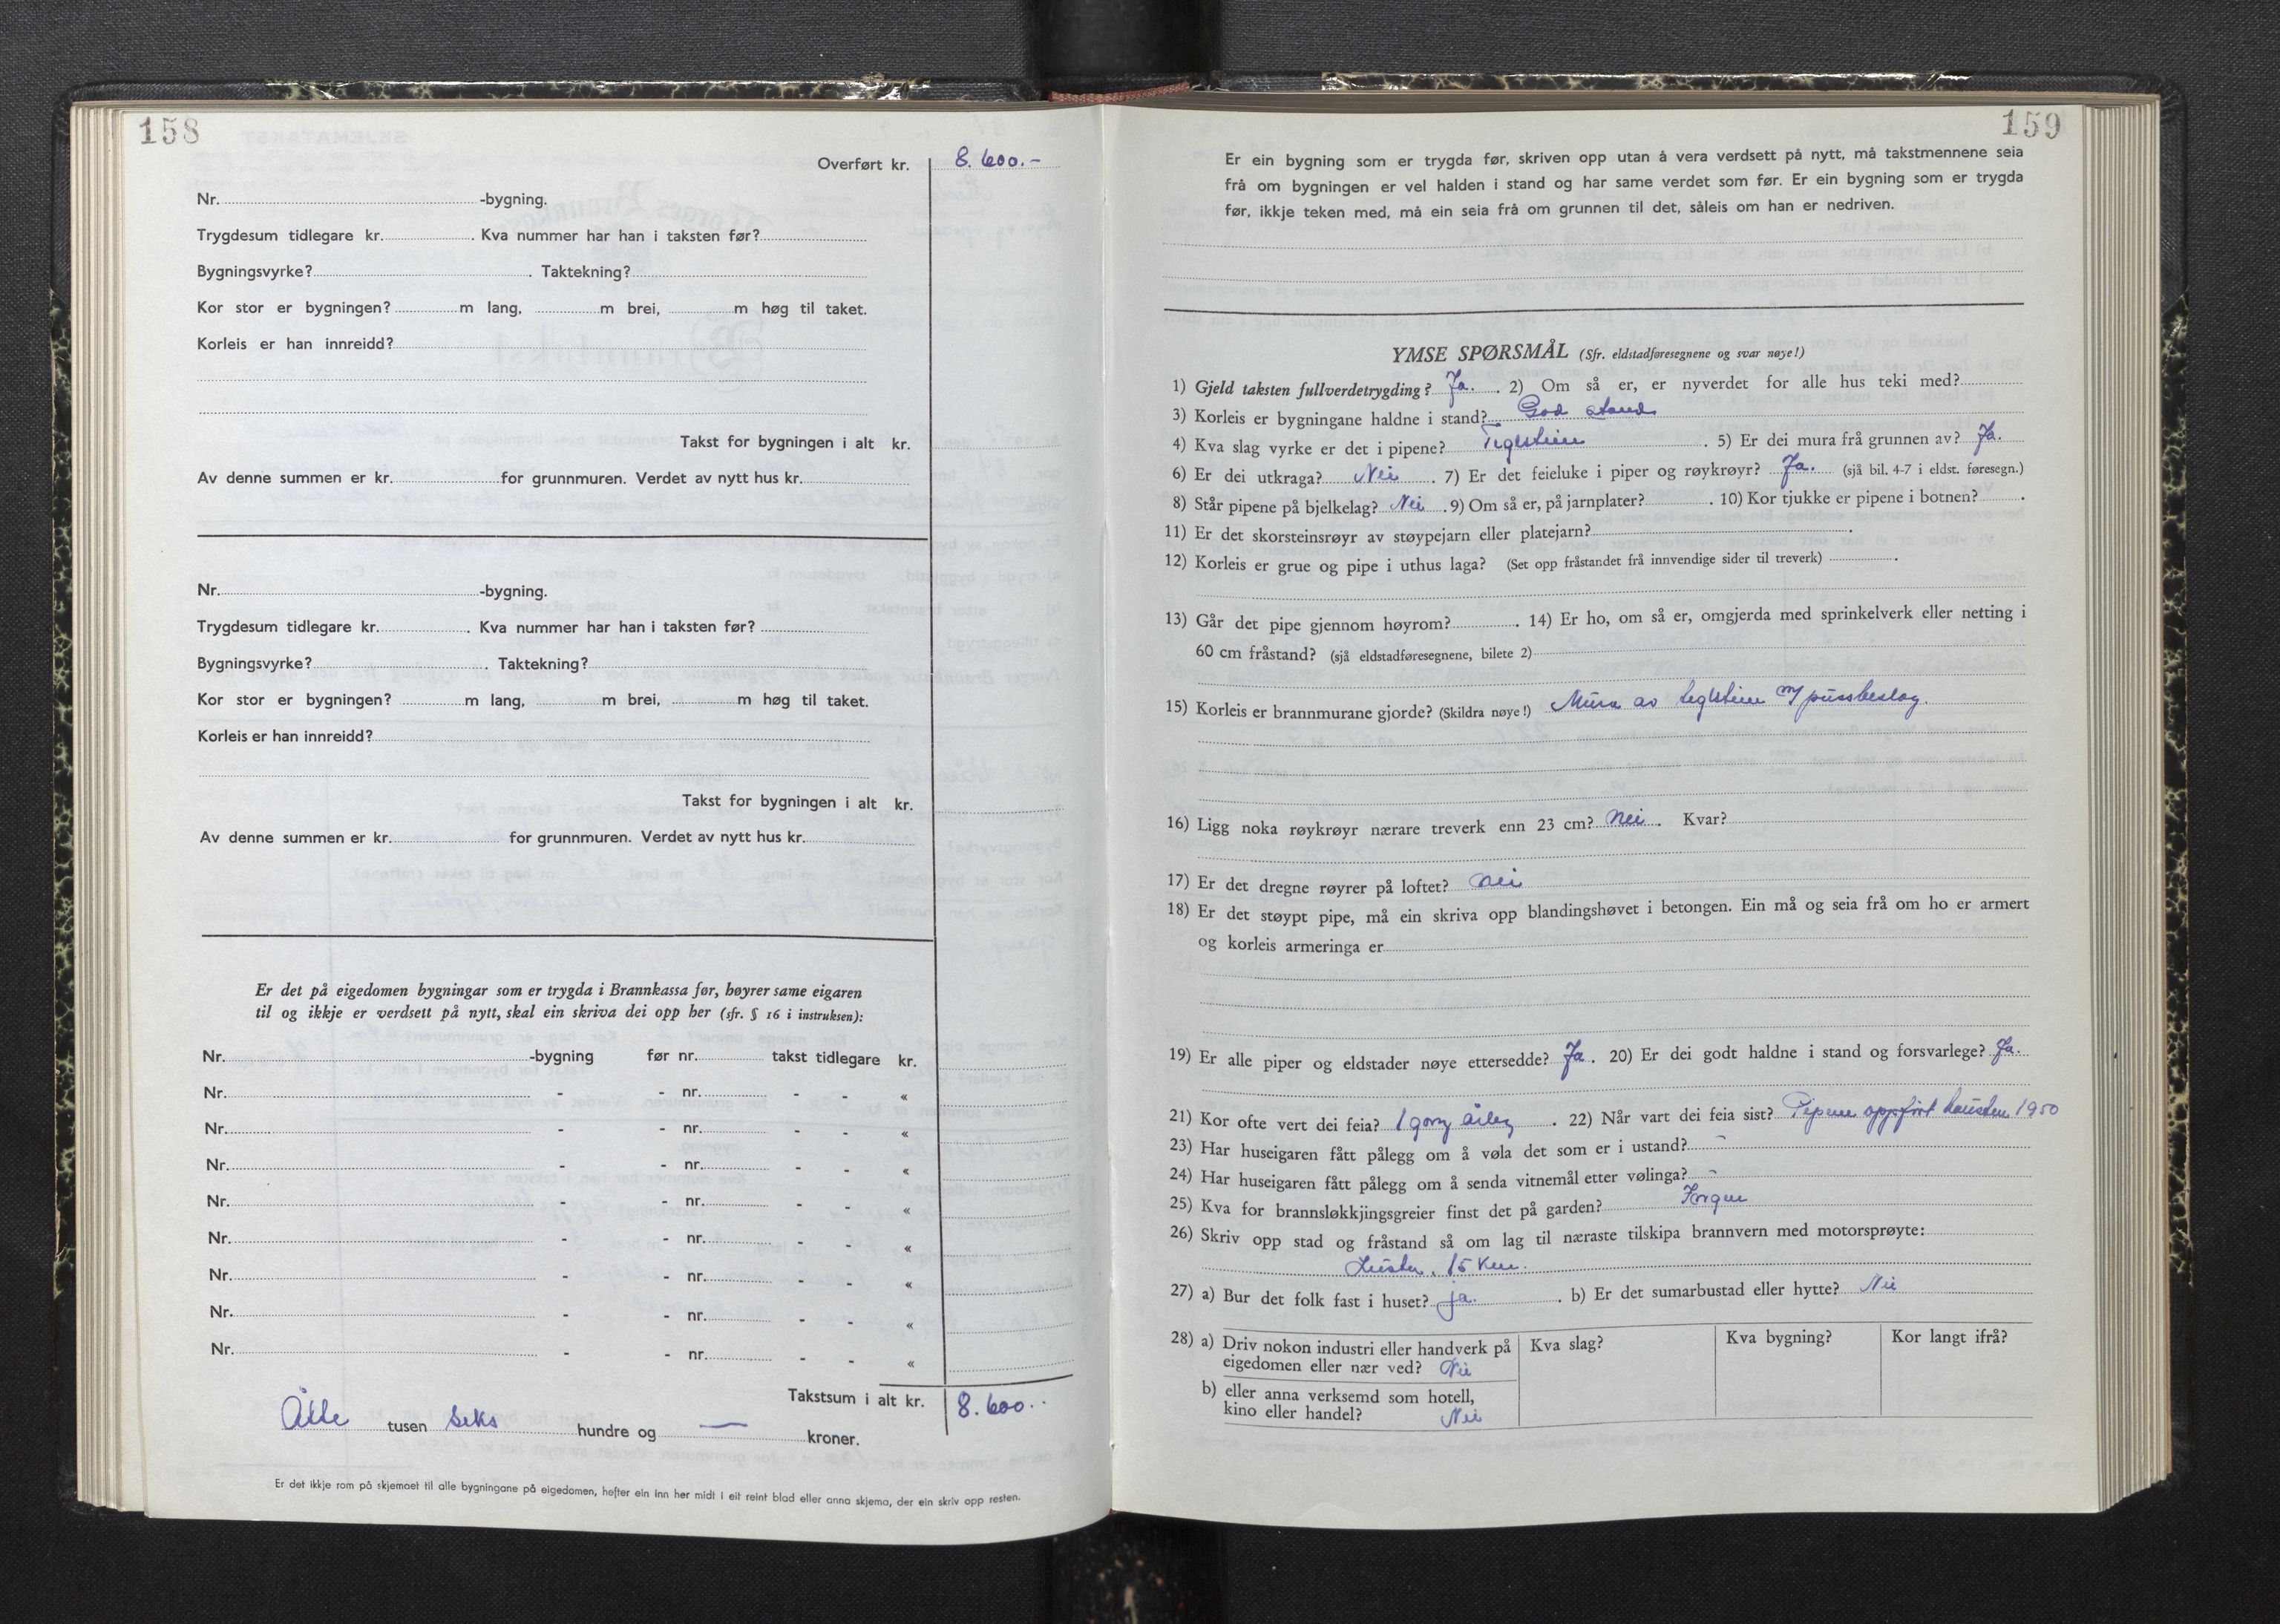 158
Overført kr. 8.600.-
Nr. -bygning.
Trygdesum tidlegare kr. . Kva nummer har han i taksten før?
Bygningsvyrke? . Taktekning?
Kor stor er bygningen? m lang, m brei, m høg til taket.
Korleis er han innreidd?
Takst for bygningen i alt kr.
Av denne summen er kr. for grunnmuren. Verdet av nytt hus kr.
Nr. -bygning.
Trygdesum tidlegare kr. . Kva nummer har han i taksten før?
Bygningsvyrke? . Taktekning?
Kor stor er bygningen? m lang, m brei, m høg til taket.
Korleis er han innreidd?
Takst for bygningen i alt kr.
Av denne summen er kr. for grunnmuren. Verdet av nytt hus kr.
Er det på eigedomen bygningar som er trygda i Brannkassa før, høyrer same eigaren
til og ikkje er verdsett på nytt, skal ein skriva dei opp her (sfr. § 16 i instruksen):
Nr. -bygning før nr. takst tidlegare kr.
Nr. - - nr. - - «
Nr. - - nr. - - «
Nr. - - nr. - - «
Nr. - - nr. - - «
Nr. - - nr. - - «
Nr. - - nr. - - «
Nr. - - nr. - - «
Nr. - - nr. - - «
Takstsum i alt kr. 8.600.-
Åtte tusen seks hundre og — kroner.
Er det ikkje rom på skjemaet til alle bygningane på eigedomen, hefter ein inn her midt i eit reint blad eller anna skjema, der ein skriv opp resten.
159
Er ein bygning som er trygda før, skriven opp utan å vera verdsett på nytt, må takstmennene seia
frå om bygningen er vel halden i stand og har same verdet som før. Er ein bygning som er trygda
før, ikkje teken med, må ein seia frå om grunnen til det, såleis om han er nedriven.
YMSE SPØRSMÅL (Sfr. eldstadføresegnene og svar nøye!)
1) Gjeld taksten fullverdetrygding? Ja. . 2) Om så er, er nyverdet for alle hus teki med?
3) Korleis er bygningane haldne i stand? God stand
4) Kva slag vyrke er det i pipene? Teglstein . 5) Er dei mura frå grunnen av? Ja.
6) Er dei utkraga? Nei . 7) Er det feieluke i piper og røykrøyr? Ja. (sjå bil. 4-7 i eldst. føresegn.)
8) Står pipene på bjelkelag? Nei . 9) Om så er, på jarnplater? . 10) Kor tjukke er pipene i botnen? .
11) Er det skorsteinsrøyr av støypejarn eller platejarn? .
12) Korleis er grue og pipe i uthus laga? (Set opp fråstandet frå innvendige sider til treverk) .
13) Går det pipe gjennom høyrom? . 14) Er ho, om så er, omgjerda med sprinkelverk eller netting i
60 cm fråstand? (sjå eldstadføresegnene, bilete 2)
15) Korleis er brannmurane gjorde? (Skildra nøye!) Mura av teglstein m/pussbeslag.
16) Ligg noka røykrøyr nærare treverk enn 23 cm? Nei . Kvar?
17) Er det dregne røyrer på loftet? Nei
18) Er det støypt pipe, må ein skriva opp blandingshøvet i betongen. Ein må og seia frå om ho er armert
og korleis armeringa er
19) Er alle piper og eldstader nøye ettersedde? Ja . 20) Er dei godt haldne i stand og forsvarlege? Ja.
21) Kor ofte vert dei feia? 1 gong årleg . 22) Når vart dei feia sist? Pipene oppført hausten 1950
23) Har huseigaren fått pålegg om å vøla det som er i ustand? -
24) Har huseigaren fått pålegg om å senda vitnemål etter vølinga? -
25) Kva for brannsløkkjingsgreier finst det på garden?
26) Skriv opp stad og fråstand så om lag til næraste tilskipa brannvern med motorsprøyte:
Luster. 15 km.
27) a) Bur det folk fast i huset? ja. . b) Er det sumarbustad eller hytte? Nei
28) a) Driv nokon industri eller handverk på eigedomen eller nær ved? Nei Kva slag? Kva bygning? Kor langt ifrå?
b) eller anna verksemd som hotell,
kino eller handel? Nei